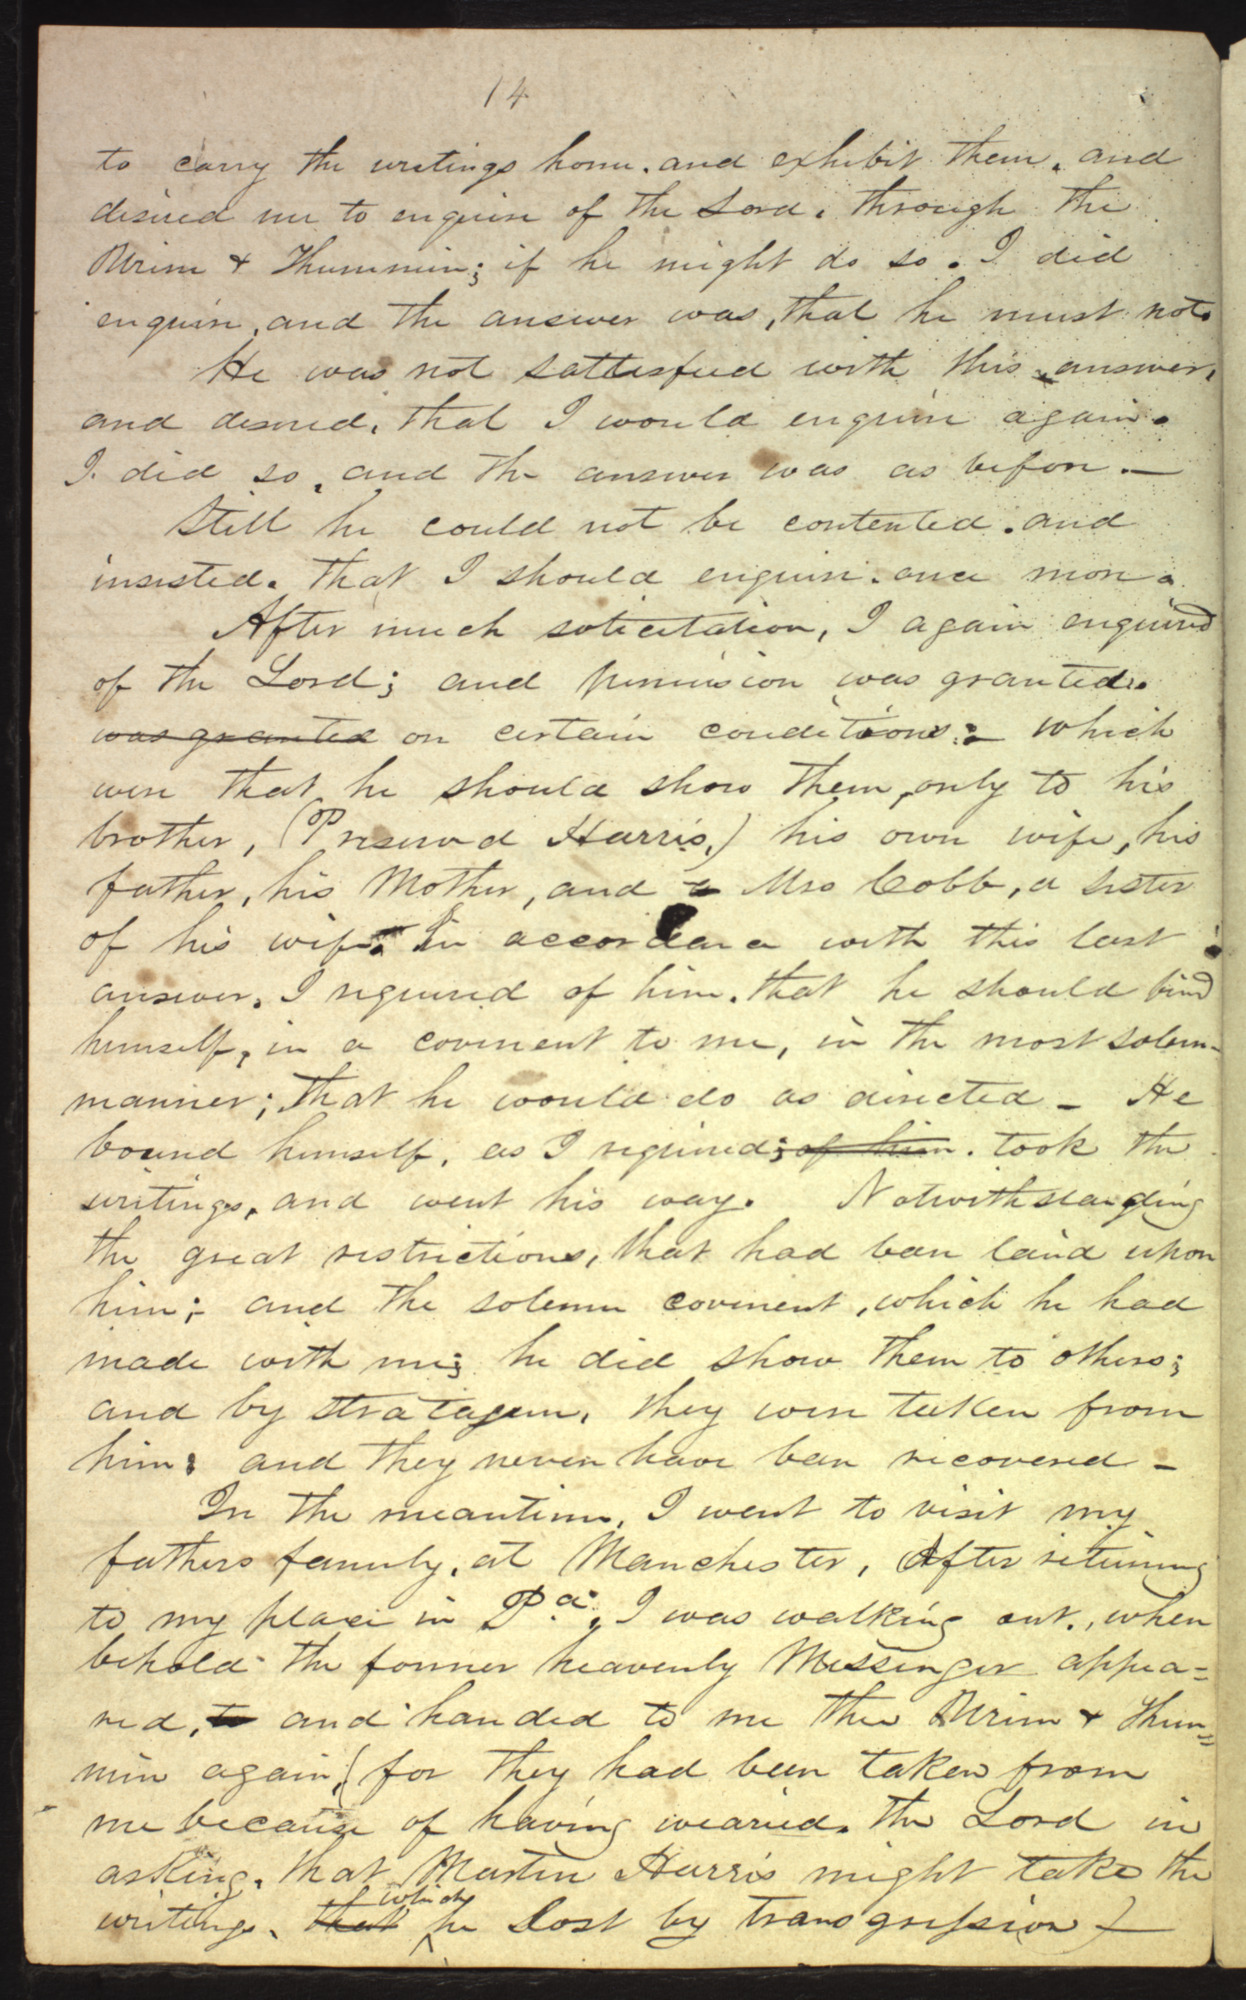 14
to carry the writings home, and exhibit them, and
desired me to enquire of the Lord, through the
Urim & Thummim; if he might do so. I did
enquire, and the answer was, that he must not.
He was not sattesfied with this answer,
and desired, that I would enquire again.
I did so, and the answer was as before. —
Still he could not be contented. and
insisted. that I should enquire. once more.
After much solicitation, I again enquired
of the Lord; and permission was granted.
was granted on certain conditions: which
were that he should show them, only to his
brother, (Preserved Harris,) his own wife, his
father, his Mother, and a Mrs Cobb, a sister
of his wife. In accordance with this last
answer. I required of him. that he should bind
himself, in a covenent to me, in the most solem-
manner; that he would do as directed — He
bound himself, as I required; of him. took the
writings, and went his way. Notwithstanding
the great restrictions, that had been laid upon
him; and the solemn covenent, which he had
made with me; he did show them to others;
and by stratagem, they were taken from
him: and they never have been recovered —
In the meantime, I went to visit my
fathers family, at Manchester, After returning
to my place in Pa., I was walking out., when
behold the former heavenly Messenger appea=
red, to and handed to me the Urim & Thum=
mim again, (for they had been taken from
me because of having wearied. the Lord in
asking. that Martin Harris might take the
writings. that which he lost by transgression) —